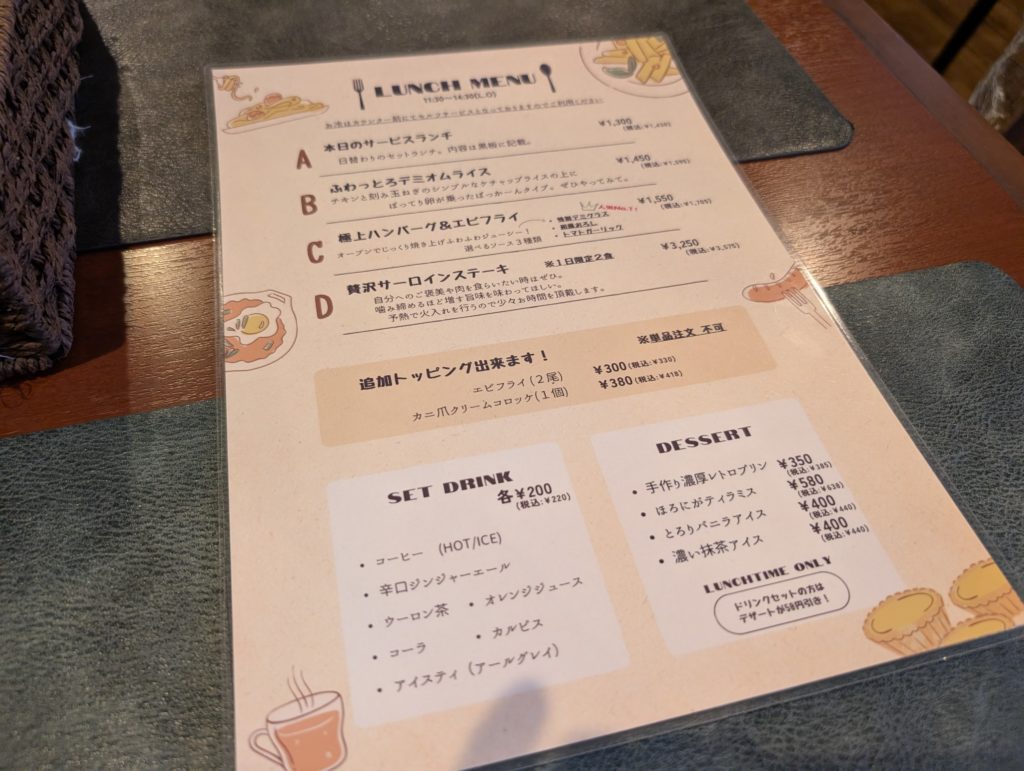 LUNCH MENU
11:30～14:30(L.O)
お冷はカウンター前にてセルフサービスとなっておりますのでご利用ください
A 本日のサービスランチ ¥1,300
日替わりのセットランチ。内容は黒板に記載。 (税込:¥1,430)
B ふわっとろデミオムライス ¥1,450
チキンと刻み玉ねぎのシンプルなケチャップライスの上に (税込:¥1,595)
ぽってり卵が乗ったぱっかーんタイプ。ぜひやってみて。
C 極上ハンバーグ&エビフライ ¥1,550
(税込:¥1,705)
オーブンでじっくり焼き上げふわふわジューシー！
選べるソース3種類
・特製デミグラス 人気No.1!
・和風おろし
・トマトガーリック
D 贅沢サーロインステーキ ※1日限定2食 ¥3,250
(税込:¥3,575)
自分へのご褒美や肉を食らいたい時はぜひ。
噛み締めるほど増す旨味を味わってほしい。
予熱で火入れを行うので少々お時間を頂戴します。
追加トッピング出来ます！ ※単品注文 不可
エビフライ(2尾) ¥300(税込:¥330)
カニ爪クリームコロッケ(1個) ¥380(税込:¥418)
SET DRINK
各¥200
(税込:¥220)
・コーヒー (HOT/ICE)
・辛口ジンジャーエール
・ウーロン茶 ・オレンジジュース
・コーラ ・カルピス
・アイスティ (アールグレイ)
DESSERT
・手作り濃厚レトロプリン ¥350
(税込:¥385)
・ほろにがティラミス ¥580
(税込:¥638)
・とろりバニラアイス ¥400
(税込:¥440)
・濃い抹茶アイス ¥400
(税込:¥440)
LUNCHTIME ONLY
ドリンクセットの方は
デザートが50円引き！